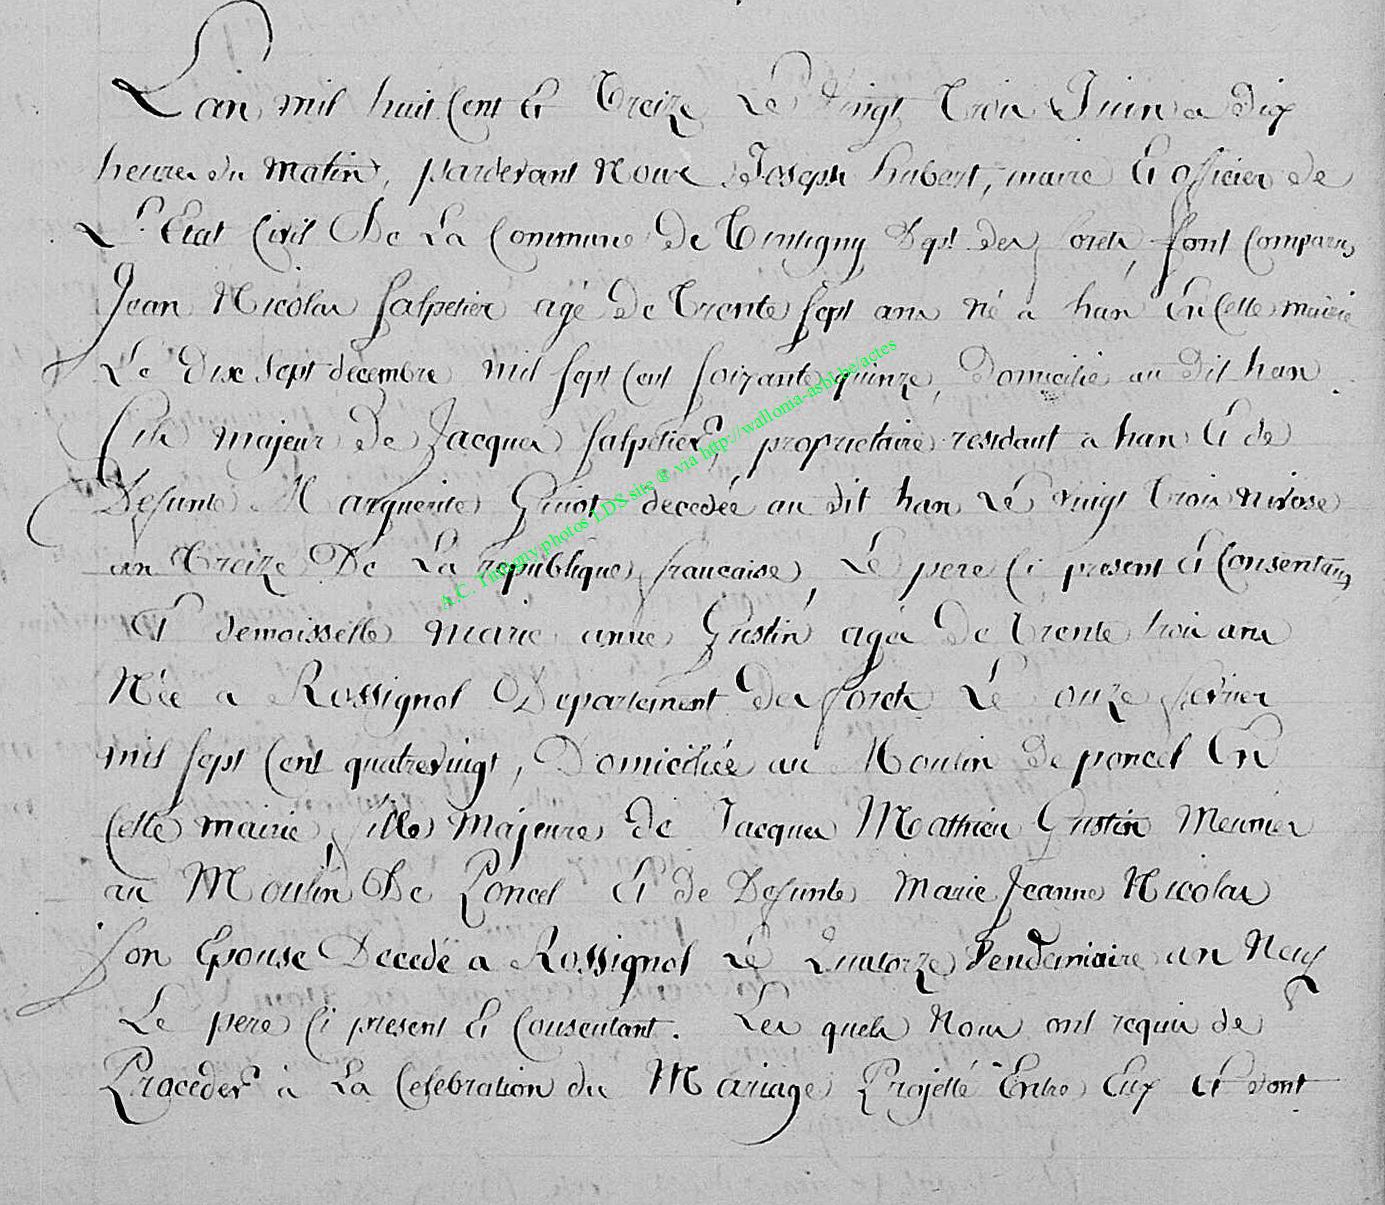 L'an mil huit Cent Et Treize Le vingt Trois Juin a Dix
heures du matin, pardevant Nous Joseph hubert, maire Et officier de
L'Etat Civil De La Commune De Tintigny Dept. des forets, sont Comparus
Jean Nicolas salpetier agé De Trente sept ans Né a han En Cette mairie
Le Dix sept decembre mil sept Cent soixante quinze, Domicilié au Dit han
fils majeur De Jacques salpetier, proprietaire residant a han Et de
Defunte Marguerite Guiot decedée au dit han Le vingt Trois nivose
an Treize De La republique francaise, Le pere Ci present Et Consentant,
Et demoisselle marie anne Gustin agée De Trente trois ans
Née a Rossignol Departement Des forets Le onze fevrier
mil sept Cent quatrevingt, Domiciliée au Moulin De poncel En
Cette mairie, fille Majeure de Jacques Mathieu Gustin Meunier
au Moulin De Poncel Et de Defunte Marie Jeanne Nicolas
son Epouse Decedé a Rossignol Le Quatorze Vendemiaire an Neuf
Le pere Ci present Et Consentant. Les quels Nous ont requis de
Proceder à La Celebration du Mariage Projetté Entre Eux Et dont
A.C. Tintigny photos LDS site ® via http://wallonia-asbl.be/actes